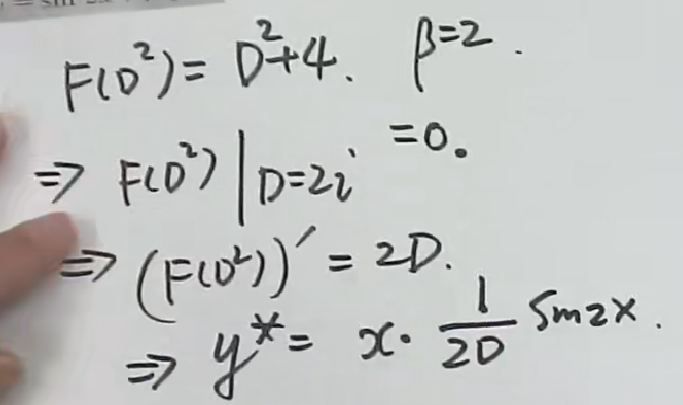 F(D²) = D²+4. β=2.
⇒ F(D²)|D=2i =0.
⇒ (F(D²))′ = 2D.
⇒ y* = x· 1/2D Sin2x.